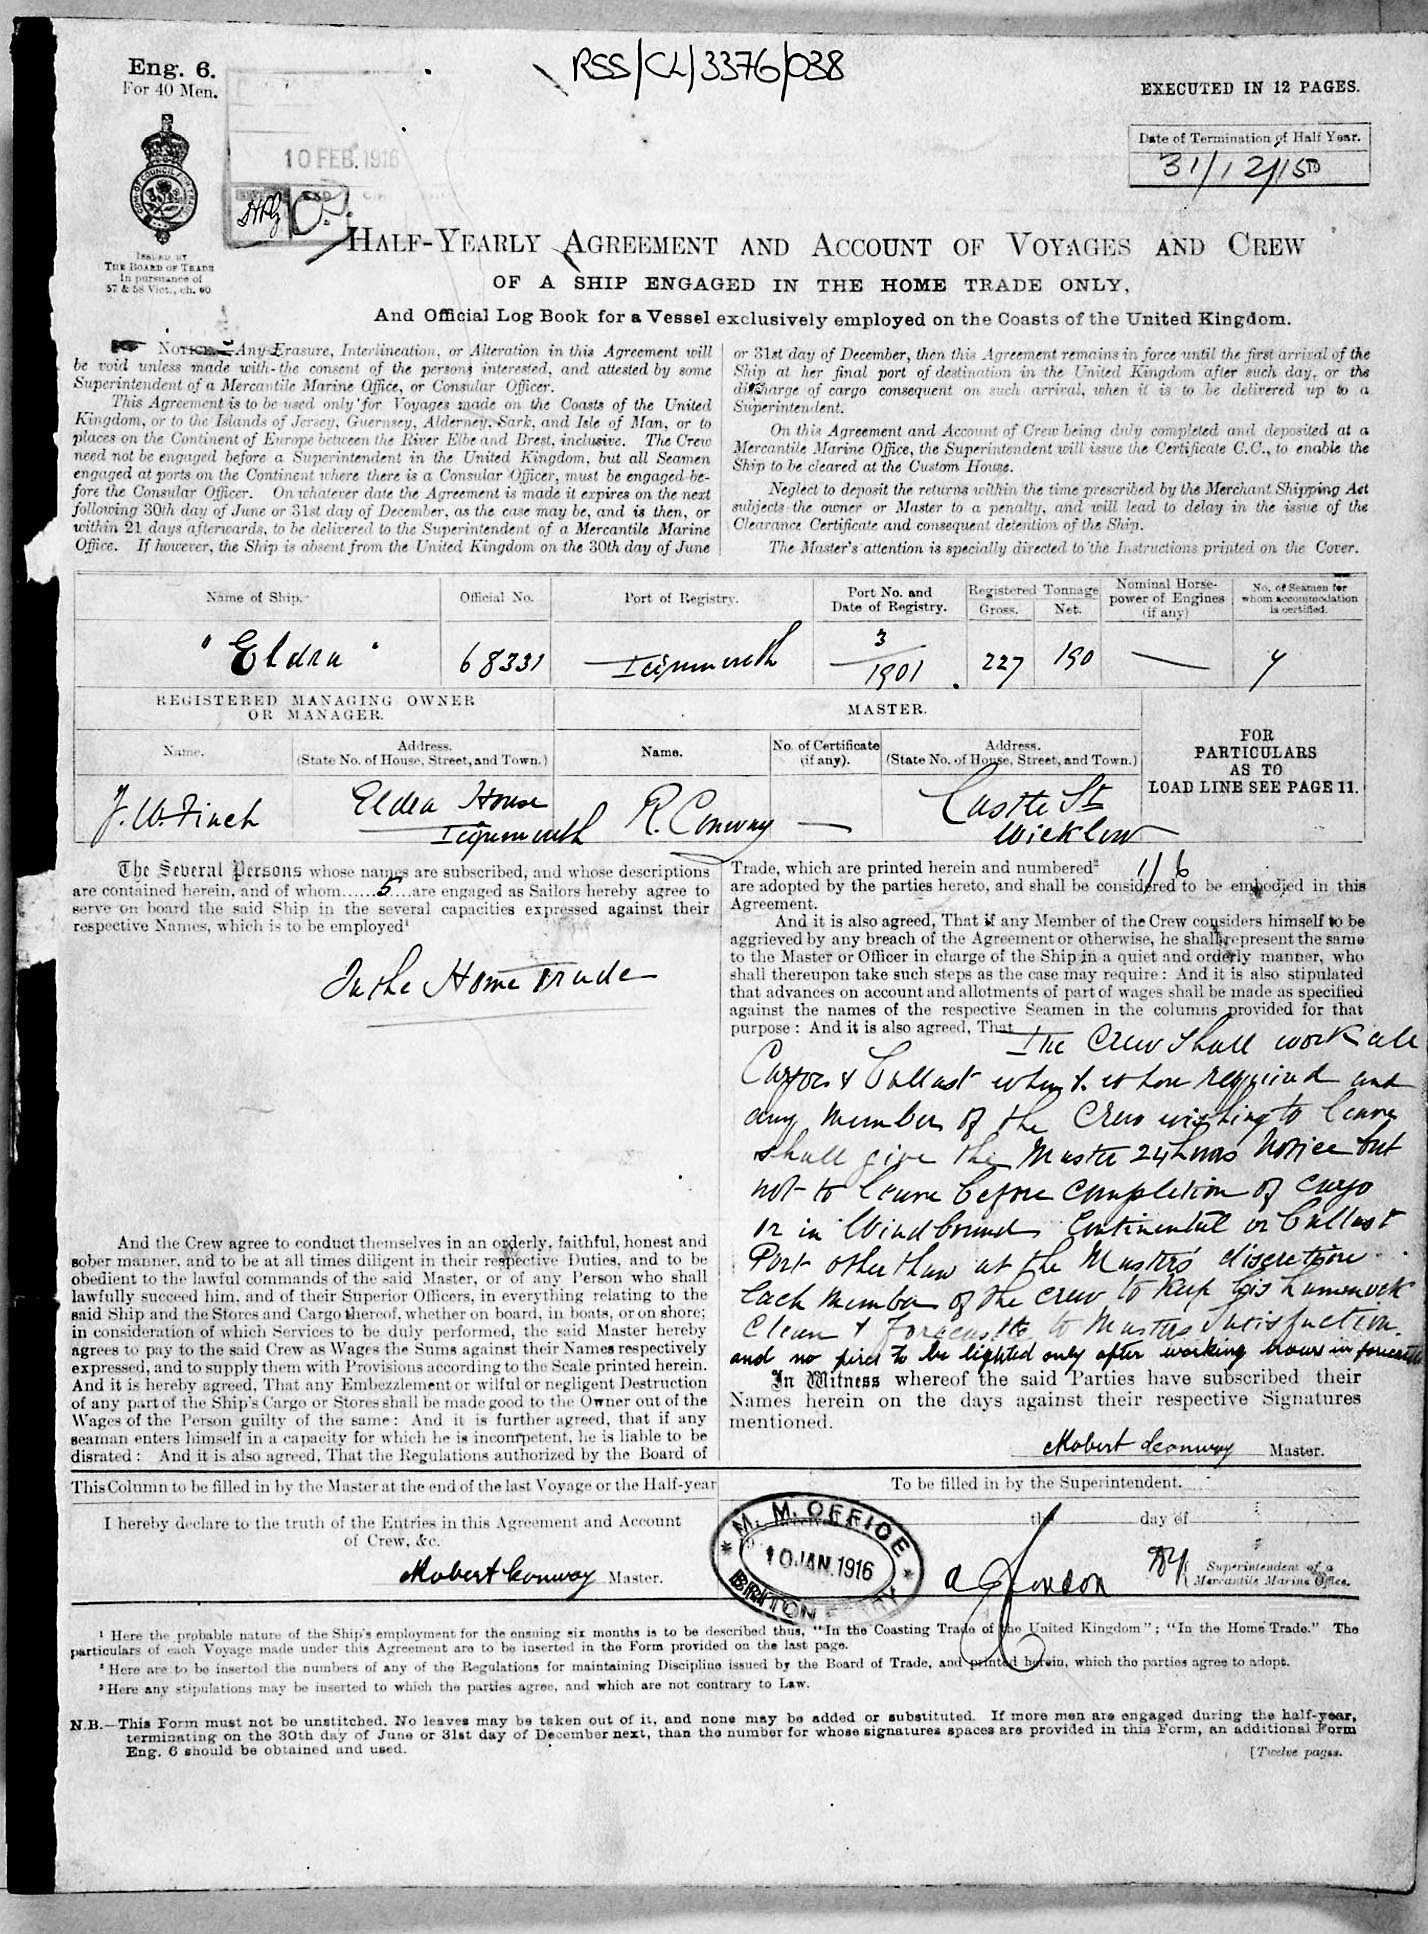 RSS/CL/3376/038
Eng. 6.
For 40 Men.
EXECUTED IN 12 PAGES.
Date of Termination of Half Year.
31/12/15
10 FEB. 1916
ISSUED BY
THE BOARD OF TRADE
In pursuance of
57 & 58 Vict., ch. 60
HALF-YEARLY AGREEMENT AND ACCOUNT OF VOYAGES AND CREW
OF A SHIP ENGAGED IN THE HOME TRADE ONLY,
And Official Log Book for a Vessel exclusively employed on the Coasts of the United Kingdom.
NOTICE.—Any Erasure, Interlineation, or Alteration in this Agreement will
be void unless made with the consent of the persons interested, and attested by some
Superintendent of a Mercantile Marine Office, or Consular Officer.
This Agreement is to be used only for Voyages made on the Coasts of the United
Kingdom, or to the Islands of Jersey, Guernsey, Alderney, Sark, and Isle of Man, or to
places on the Continent of Europe between the River Elbe and Brest, inclusive. The Crew
need not be engaged before a Superintendent in the United Kingdom, but all Seamen
engaged at ports on the Continent where there is a Consular Officer, must be engaged be-
fore the Consular Officer. On whatever date the Agreement is made it expires on the next
following 30th day of June or 31st day of December, as the case may be, and is then, or
within 21 days afterwards, to be delivered to the Superintendent of a Mercantile Marine
Office. If however, the Ship is absent from the United Kingdom on the 30th day of June
or 31st day of December, then this Agreement remains in force until the first arrival of the
Ship at her final port of destination in the United Kingdom after such day, or the
discharge of cargo consequent on such arrival, when it is to be delivered up to a
Superintendent.
On this Agreement and Account of Crew being duly completed and deposited at a
Mercantile Marine Office, the Superintendent will issue the Certificate C.C., to enable the
Ship to be cleared at the Custom House.
Neglect to deposit the returns within the time prescribed by the Merchant Shipping Act
subjects the owner or Master to a penalty, and will lead to delay in the issue of the
Clearance Certificate and consequent detention of the Ship.
The Master's attention is specially directed to the Instructions printed on the Cover.
Name of Ship. Official No. Port of Registry. Port No. and Date of Registry. Registered Tonnage Gross. Net. Nominal Horse-power of Engines (if any) No. of Seamen for whom accommodation is certified.
"Eldra" 68331 Teignmouth 3/1901. 227 190 — 7
REGISTERED MANAGING OWNER
OR MANAGER.
MASTER.
Name. Address. (State No. of House, Street, and Town.) Name. No. of Certificate (if any). Address. (State No. of House, Street, and Town.)
FOR
PARTICULARS
AS TO
LOAD LINE SEE PAGE 11.
J. W. Finch Eldra House R. Conway — Castle St
Teignmouth Wicklow
The Several Persons whose names are subscribed, and whose descriptions
are contained herein, and of whom 5 are engaged as Sailors hereby agree to
serve on board the said Ship in the several capacities expressed against their
respective Names, which is to be employed¹
In the Home Trade
And the Crew agree to conduct themselves in an orderly, faithful, honest and
sober manner, and to be at all times diligent in their respective Duties, and to be
obedient to the lawful commands of the said Master, or of any Person who shall
lawfully succeed him, and of their Superior Officers, in everything relating to the
said Ship and the Stores and Cargo thereof, whether on board, in boats, or on shore;
in consideration of which Services to be duly performed, the said Master hereby
agrees to pay to the said Crew as Wages the Sums against their Names respectively
expressed, and to supply them with Provisions according to the Scale printed herein.
And it is hereby agreed, That any Embezzlement or wilful or negligent Destruction
of any part of the Ship's Cargo or Stores shall be made good to the Owner out of the
Wages of the Person guilty of the same: And it is further agreed, that if any
seaman enters himself in a capacity for which he is incompetent, he is liable to be
disrated: And it is also agreed, That the Regulations authorized by the Board of
Trade, which are printed herein and numbered² 1/6
are adopted by the parties hereto, and shall be considered to be embodied in this
Agreement.
And it is also agreed, That if any Member of the Crew considers himself to be
aggrieved by any breach of the Agreement or otherwise, he shall represent the same
to the Master or Officer in charge of the Ship in a quiet and orderly manner, who
shall thereupon take such steps as the case may require: And it is also stipulated
that advances on account and allotments of part of wages shall be made as specified
against the names of the respective Seamen in the columns provided for that
purpose: And it is also agreed, That The Crew shall work all
Cargoes & Ballast when & where required and
any member of the Crew wishing to leave
shall give the Master 24 hours Notice but
not to leave before completion of cargo
or in Windbound Continental or Ballast
Port other than at the Masters' discretion
Each member of the crew to keep his hammock
clean & Forecastle to Masters Satisfaction.
and no fires to be lighted only after working hours in forecastle
In Witness whereof the said Parties have subscribed their
Names herein on the days against their respective Signatures
mentioned.
Robert Conway Master.
This Column to be filled in by the Master at the end of the last Voyage or the Half-year
I hereby declare to the truth of the Entries in this Agreement and Account
of Crew, &c.
Robert Conway Master.
To be filled in by the Superintendent.
the day of
M. M. OFFICE
10 JAN. 1916
BRITON FERRY
Superintendent of a
Mercantile Marine Office.
¹ Here the probable nature of the Ship's employment for the ensuing six months is to be described thus, "In the Coasting Trade of the United Kingdom"; "In the Home Trade." The
particulars of each Voyage made under this Agreement are to be inserted in the Form provided on the last page.
² Here are to be inserted the numbers of any of the Regulations for maintaining Discipline issued by the Board of Trade, and printed herein, which the parties agree to adopt.
³ Here any stipulations may be inserted to which the parties agree, and which are not contrary to Law.
N.B.—This Form must not be unstitched. No leaves may be taken out of it, and none may be added or substituted. If more men are engaged during the half-year,
terminating on the 30th day of June or 31st day of December next, than the number for whose signatures spaces are provided in this Form, an additional Form
Eng. 6 should be obtained and used.
[Twelve pages.